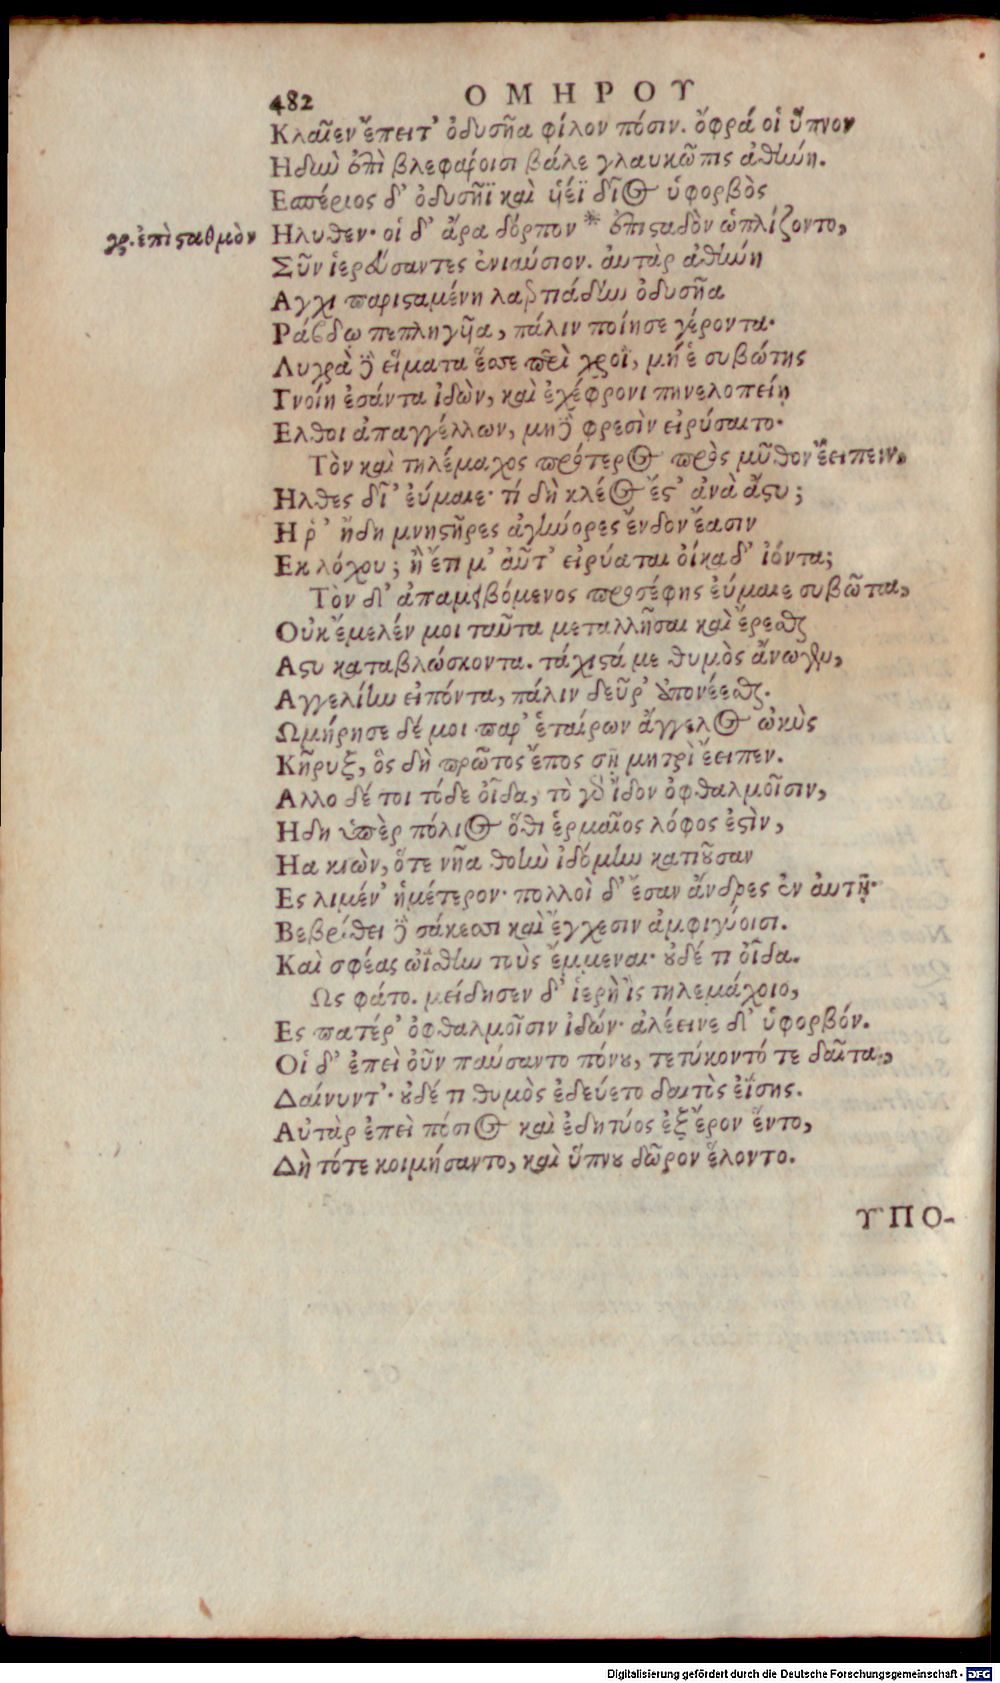 482 ΟΜΗΡΟΥ
Κλαῖεν ἔπειτ' ὀδυσῆα φίλον πόσιν. ὄφρά οἱ ὕπνον
Ηδιὺ ἐπὶ βλεφάροισι βάλε γλαυκῶπις ἀθήνη.
Εασέριος δ' ὀδυσῆϊ καὶ ὑέϊ δῖος ὑφορβὸς
γρ. ἐπὶ ςαθμὸν Ηλυθεν· οἱ δ' ἄρα δόρπον * ἐπιςαδὸν ὡπλίζοντο,
Σῦν ἱερεύσαντες ἐνιαύσιον. ἀυτὰρ ἀθήνη
Αγχι παριςαμένη λαερτιάδην ὀδυσῆα
Ράβδῳ πεπληγῆα, πάλιν ποίησε γέροντα·
Λυγρὰ δὲ εἵματα ἕσσε περὶ χροῒ, μή ἑ συβώτης
Γνοίη ἐσάντα ἰδὼν, καὶ ἐχέφρονι πηνελοπείῃ
Ελθοι ἀπαγγέλλων, μηδὲ φρεσὶν εἰρύσαιτο·
Τὸν καὶ τηλέμαχος πρότερος πρὸς μῦθον ἔειπεν,
Ηλθες δῖ' εὔμαιε· τί δὴ κλέος ἔς' ἀνὰ ἄςυ;
Η ῥ' ἤδη μνηςῆρες ἀγήνορες ἔνδον ἔασιν
Εκ λόχου; ἢ ἔτι μ' ἀῦτ' εἰρύαται οἴκαδ' ἰόντα;
Τὸν δ' ἀπαμειβόμενος προσέφης ἐύμαιε συβῶτα,
Ουκ ἔμελέν μοι ταῦτα μεταλλῆσαι καὶ ἔρεσθαι
Αςυ καταβλώσκοντα. τάχιςά με θυμὸς ἄνωγεν,
Αγγελίην εἰπόντα, πάλιν δεῦρ' ἀπονέεσθαι.
Ωμήρησε δέ μοι παρ' ἑταίρων ἄγγελος ὠκὺς
Κῆρυξ, ὃς δὴ πρῶτος ἔπος σῇ μητρὶ ἔειπεν.
Αλλο δέ τοι τόδε οἶδα, τὸ γὰρ ἴδον ὀφθαλμοῖσιν,
Ηδη ὑπὲρ πόλιος ὅθι ἑρμαῖος λόφος ἐςὶν,
Ηα κιὼν, ὅτε νῆα θοὴν ἰδόμην κατιοῦσαν
Ες λιμέν' ἡμέτερον· πολλοὶ δ' ἔσαν ἄνδρες ἐν ἀυτῇ·
Βεβρίθει δὲ σάκεσσι καὶ ἔγχεσιν ἀμφιγύοισι.
Καὶ σφέας ὠΐσθην τοὺς ἔμμεναι· οὐδέ τι οἶδα.
Ως φάτο. μείδησεν δ' ἱερὴ ῒς τηλεμάχοιο,
Ες πατέρ' ὀφθαλμοῖσιν ἰδών· ἀλέεινε δ' ὑφορβόν.
Οἱ δ' ἐπεὶ οὖν παύσαντο πόνου, τετύκοντό τε δαῖτα,
Δαίνυντ'· οὐδέ τι θυμὸς ἐδεύετο δαιτὸς ἐΐσης.
Αὐτὰρ ἐπεὶ πόσιος καὶ ἐδητύος ἐξ ἔρον ἕντο,
Δὴ τότε κοιμήσαντο, καὶ ὕπνου δῶρον ἕλοντο.
ΥΠΟ-
Digitalisierung gefördert durch die Deutsche Forschungsgemeinschaft - DFG